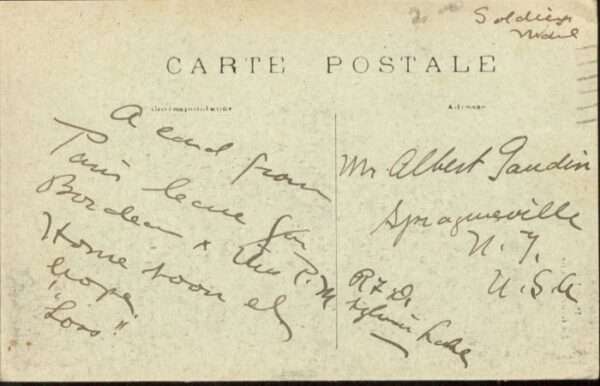 Soldiers
Mail
CARTE POSTALE
Correspondance
Adresse
A card from
Paris leave for
Bordeau x this P.M
Home soon eh
hope
"Loss"
Mr Albert Gaudin
Spragueville
N. Y.
U. S. A
R. F. D.
Sylvia Lake